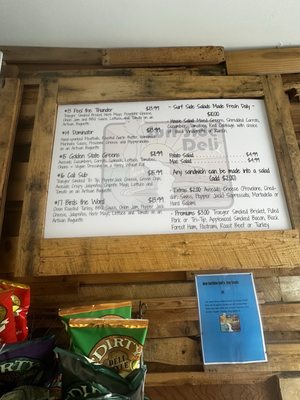 #13 Feel the Thunder $13.99
Traeger Smoked Brisket, Herb Mayo, Provolone Cheese,
Onion Jam and BBQ Sauce, Lettuce and Tomato on an
Artisan Baguette
#14 Dominator $13.99
Mozzarella, Salami, Provolone Cheese and Pepperoncinis
on an Artisan Baguette
#15 Golden State Greens $11.99
Avocado, Cucumbers, Carrots, Cabbage, Lettuce, Tomatoes,
Onions w/ Vegan Dressing on a Honey Wheat Roll
#16 Cali Sub $13.99
Traeger Smoked Tri-Tip, Pepper Jack Cheese, Green Chili,
Avocado, Crispy Jalapeños, Chipotle Mayo, Lettuce and
Tomato on an Artisan Baguette
#17 Birds the Word $13.99
Oven Roasted Turkey, BBQ Sauce, Onion Jam, Pepper Jack
Cheese, Jalapeños, Herb Mayo, Lettuce and Tomato on an
Artisan Baguette
- Surf Side Salads Made Fresh Daily -
$10.00
House Salad: Mixed Greens, Shredded Carrots,
Cucumber, Tomatoes, Red Cabbage with choice
of Ranch
Deli
Potato Salad $4.99
Mac Salad $4.99
Any sandwich can be made into a salad
(add $2.00)
- Extras $2.00: Avocado, Cheese (Provolone, Ched-
dar, Swiss, Pepper Jack), Capressata, Mortadella or
Hard Salami
- Premiums $3.00: Traeger Smoked Brisket, Pulled
Pork or Tri-Tip, Applewood Smoked Bacon, Black
Forest Ham, Pastrami, Roast Beef or Turkey
DIRTY
DIRTY